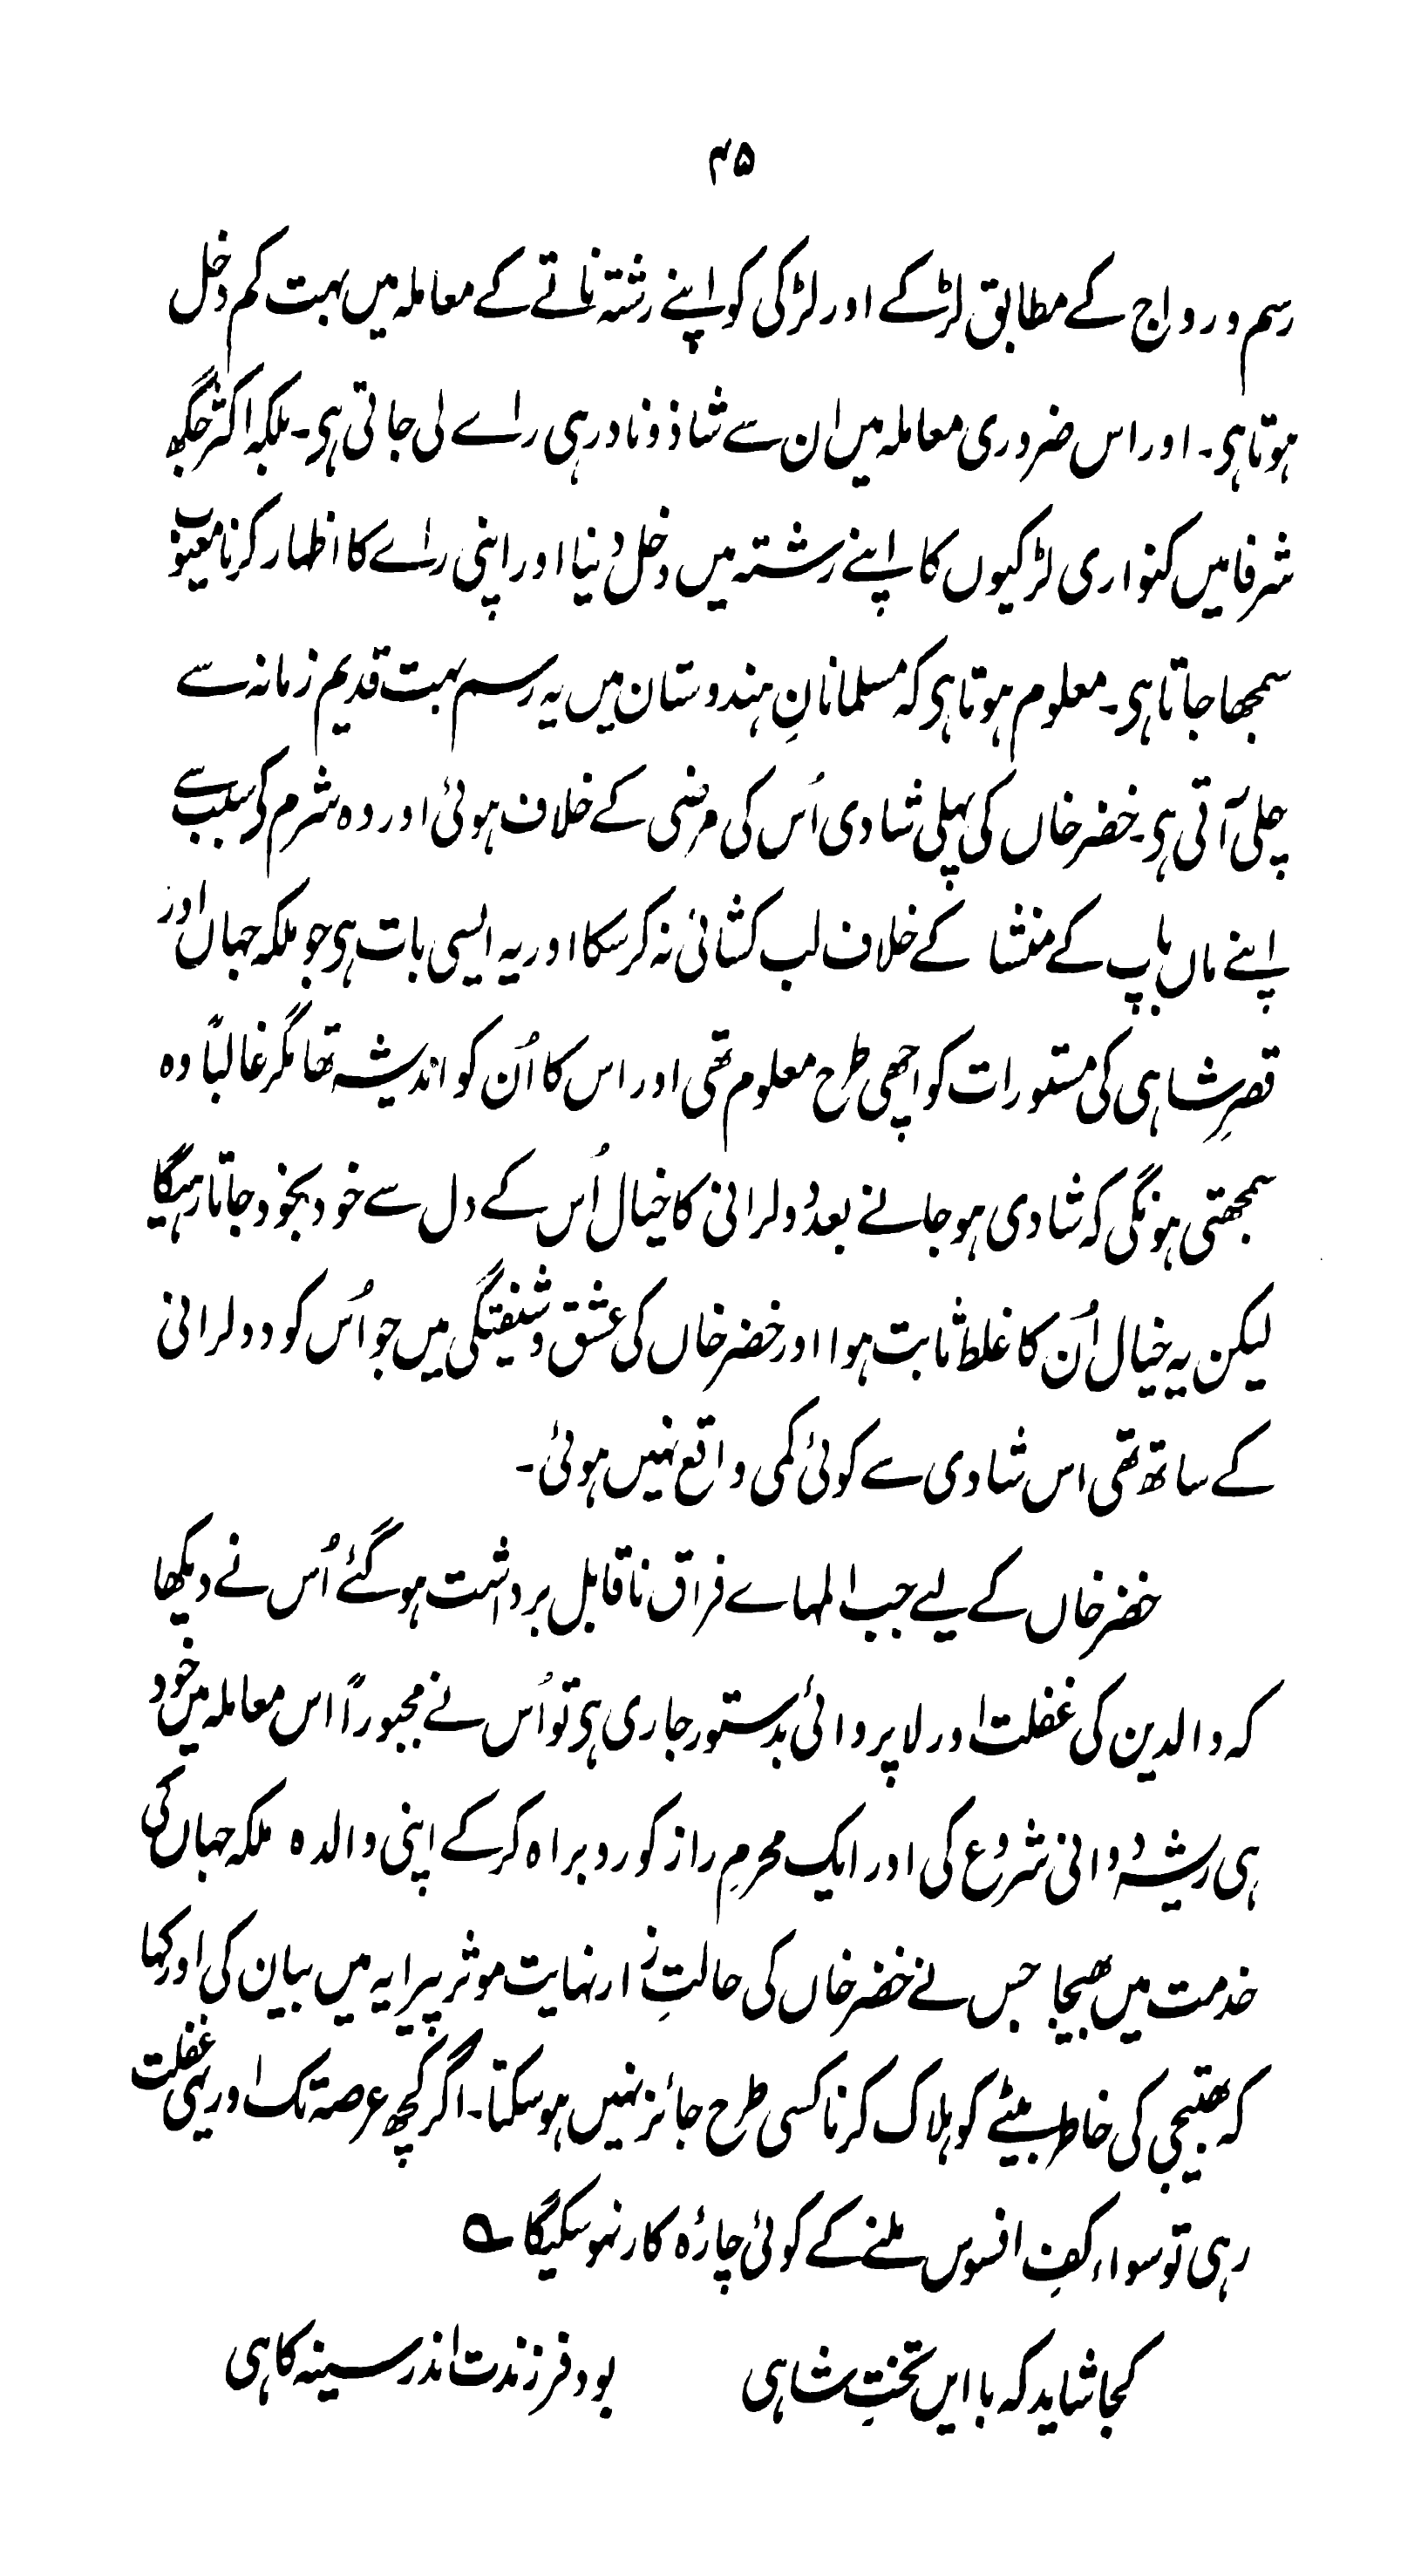 ۴۵
رسم و رواج کے مطابق لڑکے اور لڑکی کو اپنے رشتہ ناتے کے معاملہ میں بہت کم دخل
ہوتا ہی۔ اور اس ضروری معاملہ میں ان سے شاذ و نادر ہی راے لی جاتی ہی۔ بلکہ اکثر جگھ
شرفا میں کنواری لڑکیوں کا اپنے رشتہ میں دخل دینا اور اپنی راے کا اظہار کرنا معیوب
سمجھا جاتا ہی۔ معلوم ہوتا ہی کہ مسلمانانِ ہندوستان میں یہ رسم بہت قدیم زمانہ سے
چلی آتی ہی۔ خضر خاں کی پہلی شادی اُس کی مرضی کے خلاف ہوئی اور وہ شرم کی سبب سے
اپنے ماں باپ کے منشا کے خلاف لب کشائی نہ کرسکا اور یہ ایسی بات ہی جو ملکہ جہاں اور
قصرِ شاہی کی مستورات کو اچھی طرح معلوم تھی اور اس کا اُن کو اندیشہ تھا مگر غالباً وہ
سمجھتی ہونگی کہ شادی ہو جانے بعد دولرانی کا خیال اُس کے دل سے خود بخود جاتا رہیگا
لیکن یہ خیال اُن کا غلط ثابت ہوا اور خضر خاں کی عشق و شیفتگی میں جو اُس کو دولرانی
کے ساتھ تھی اس شادی سے کوئی کمی واقع نہیں ہوئی۔
خضر خاں کے لیے جب المہاے فراق ناقابل برداشت ہو گئے اُس نے دیکھا
کہ والدین کی غفلت اور لاپروائی بدستور جاری ہی تو اُس نے مجبوراً اس معاملہ میں خود
ہی ریشہ دوانی شروع کی اور ایک محرمِ راز کو روبراہ کرکے اپنی والدہ ملکہ جہاں کی
خدمت میں بھیجا جس نے خضر خاں کی حالتِ زار نہایت موثر پیرایہ میں بیان کی اور کہا
کہ بھتیجی کی خاطر بیٹے کو ہلاک کرنا کسی طرح جائز نہیں ہو سکتا۔ اگر کچھ عرصہ تک اور یہی غفلت
رہی تو سواء کفِ افسوس ملنے کے کوئی چارۂ کار نہو سکیگا ؎
کجا شاید کہ با ایں تختِ شاہی بود فرزندت اندر سینہ کاہی